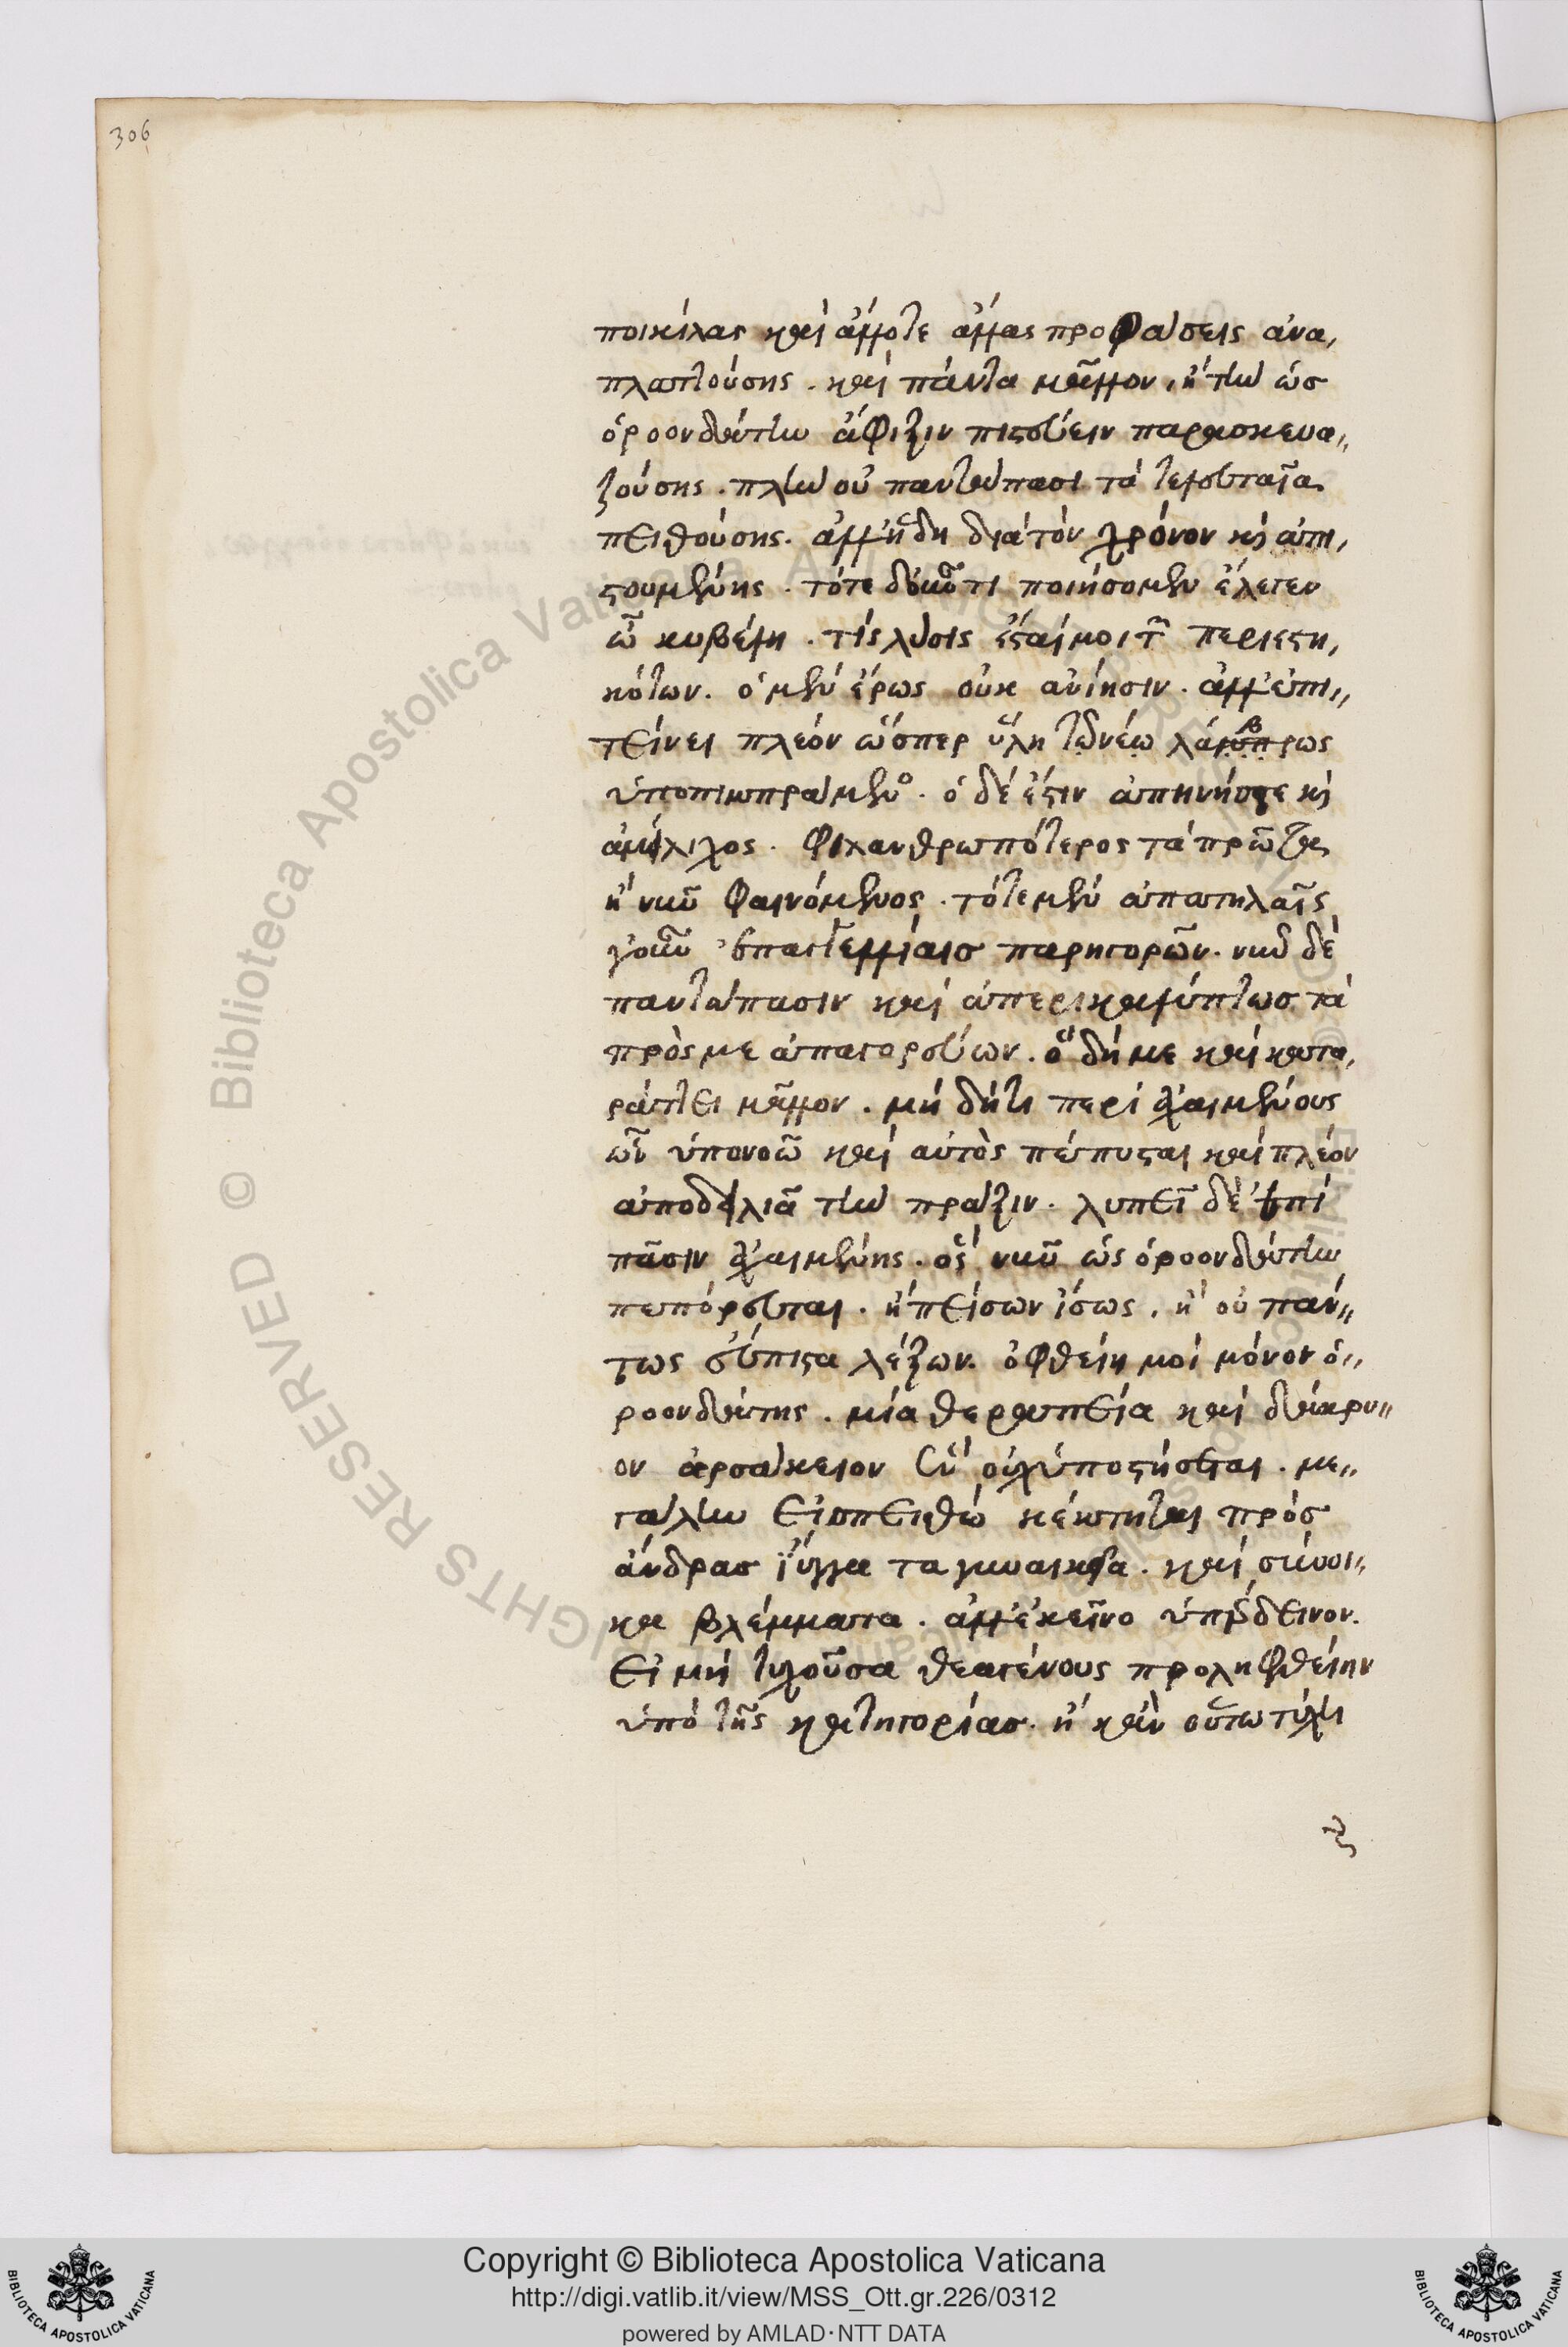 306
ποικίλας καὶ ἄλλοτε ἄλλας προφάσεις ἀνα,
πλαττούσης. καὶ πάντα μᾶλλον, ἢ τὴν ὡσ
ὀροονδάτην ἄφιξιν πιστεύειν παρασκευα,,
ζούσης. πλὴν οὐ παντάπασι τὰ τελευταῖα
πειθούσης. ἀλλ' ἤδη διὰ τὸν χρόνον κὶ ἀπι,
στουμένης. τότε δ' οὖν τί ποιήσομεν ἔλεγεν
ὦ κυβέλη. τίς λύσις ἔσται μοι τῶν περιεστη,
κότων. ὁ μὲν ἔρως οὐκ ἀνίησιν. ἀλλ' ἐπι,,
τείνει πλέον ὥσπερ ὕλη τῷ νέῳ λάβρως
ὑποπιμπράμενος. ὁ δέ ἐστιν ἀπηνήστε κὶ
ἀμείλιχος. φιλανθρωπότερος τὰ πρῶτα
ἢ νῦν φαινόμενος. τότε μὲν ἀπατηλαῖς
γοῦν ἐπαγγελίαισ παρηγορῶν. νῦν δὲ
παντάπασιν καὶ ἀπερικαλύπτως τὰ
πρὸς με ἀπαγορεύων. ὃ δή με καὶ κατα,
ράττει μᾶλλον. μή δή τι περὶ ἀχαιμένους
ὧν ὑπονοῶ καὶ αὐτὸς πέπυσται καὶ πλέον
ἀποδειλιᾶ τὴν πρᾶξιν. λυπεῖ δὲ ἐπὶ
πᾶσιν ἀχαιμένης. ὃς νῦν ὡς ὀροονδάτην
πεπόρευται. ἢ πείσων ἴσως, ἢ οὐ πάν,,
τως εὔπιστα λέξων. ὀφθείη μοί μόνον ὀ,,
ροονδάτης. μία θεραπεία καὶ δάκρυ,,
ον ἀρσάκειον ἓν οὐχ ὑποστήσεται. με,,
γάλην εἰσ πειθὼ κέκτηται πρὸσ
ἄνδρασ ἴϋγγα τα γυναικεῖα. καὶ σύνοι,,
κα βλέμματα. ἀλλ' ἐκεῖνο ὑπέρδεινον.
εἰ μὴ τυχοῦσα θεαγένους προληφθείην
ὑπὸ τῆς κατηγορίασ. ἢ κἂν οὕτω τύχη
Copyright © Biblioteca Apostolica Vaticana
http://digi.vatlib.it/view/MSS_Ott.gr.226/0312
powered by AMLAD·NTT DATA